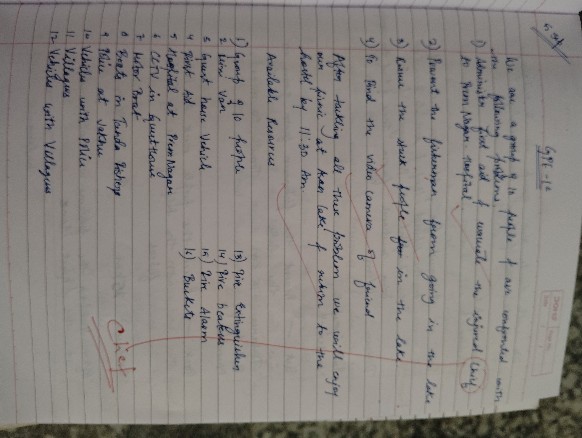 GPE-12
We are a group of 10 people & are confronted with
the following problems.
1) Administer first aid & evacuate the injured (Chief)
to Prem Nagar Hospital
2) Prevent the fisherman from going in the lake
3) Rescue the stuck people in the lake.
4) To Find the video camera of friend
After tackling all these problem we will enjoy
our picnic at lake & return to the
hostel by 11:30 Am.
Available Resources
1) Group of 10 people
2) Van
3) Guest house Vehicle
4) First Aid
5) Hospital at Prem Nagar
6) CCTV in Guest House
7) Motor Boat
8) Boats in
9) Police at
10) Vehicle with Police
11) Villagers
12) Vehicles with Villagers
13) Fire Extinguisher
14) Fire beaters
15) Fire Alarm
16) Buckets
Chief